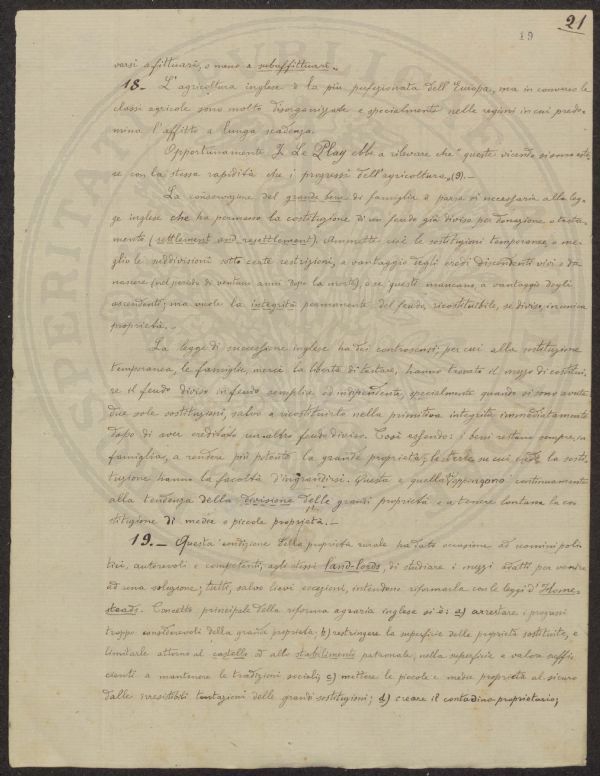 21
19
varsi affittuari, o meno a subaffittuari.
18.- L'agricoltura inglese è la più perfezionata dell'Europa, ma in converso le
classi agricole sono molto disorganizzate e specialmente nelle regioni in cui predo-
mina l'affitto a lunga scadenza.
Opportunamente J. Le Play ebbe a rilevare che "queste vicende si sono este-
se con la stessa rapidità che i progressi dell'agricoltura" (9).-
La conservazione del grande bene di famiglia è parsa sì necessaria alla leg-
ge inglese che ha permesso la costituzione di un feudo già diviso per donazione o testa-
mento (settlement and resettlement). Ammette così le sostituzioni temporanee, o me-
glio le suddivisioni sotto certe restrizioni, a vantaggio degli eredi discendenti vivi o da
nascere (nel periodo di ventun anni dopo la morte), o se questi mancano, a vantaggio degli
ascendenti; ma vuole la integrità permanente del feudo, ricostituibile, se diviso, in unica
proprietà.-
La legge di successione inglese ha dei controsensi per cui alla sostituzione
temporanea, le famiglie, mercè la libertà di testare, hanno trovato il mezzo di costitui-
re il feudo diviso in feudo semplice ed indipendente, specialmente quando vi sono avute
due sole sostituzioni, salvo a ricostituirlo nella primitiva integrità immediatamente
dopo di aver ereditato un altro feudo diviso. Così essendo: i beni restano sempre in
famiglia, a rendere più potente la grande proprietà; le terre su cui cade la sosti-
tuzione hanno la facoltà d'ingrandirsi. Questa e quella si oppongono continuamente
alla tendenza della divisione delle grandi proprietà e a tenere lontana la co-
stituzione di medie o piccole proprietà.-
19.- Questa condizione della proprietà rurale ha dato occasione ad uomini poli-
tici, autorevoli e competenti, agli stessi land-lords, di studiare i mezzi adatti per venire
ad una soluzione; tutti, salvo lievi eccezioni, intendono riformarla con le leggi d'Home-
steads. Concetto principale della riforma agraria inglese si è: a) arrestare i progressi
troppo considerevoli della grande proprietà; b) restringere la superficie delle proprietà sostituite, e
limitarle attorno al castello ed allo stabilimento patronale, nella superficie e valore suffi-
cienti a mantenere le tradizioni sociali; c) mettere le piccole e medie proprietà al sicuro
dalle irresistibili tentazioni delle grandi sostituzioni; d) creare il contadino proprietario;